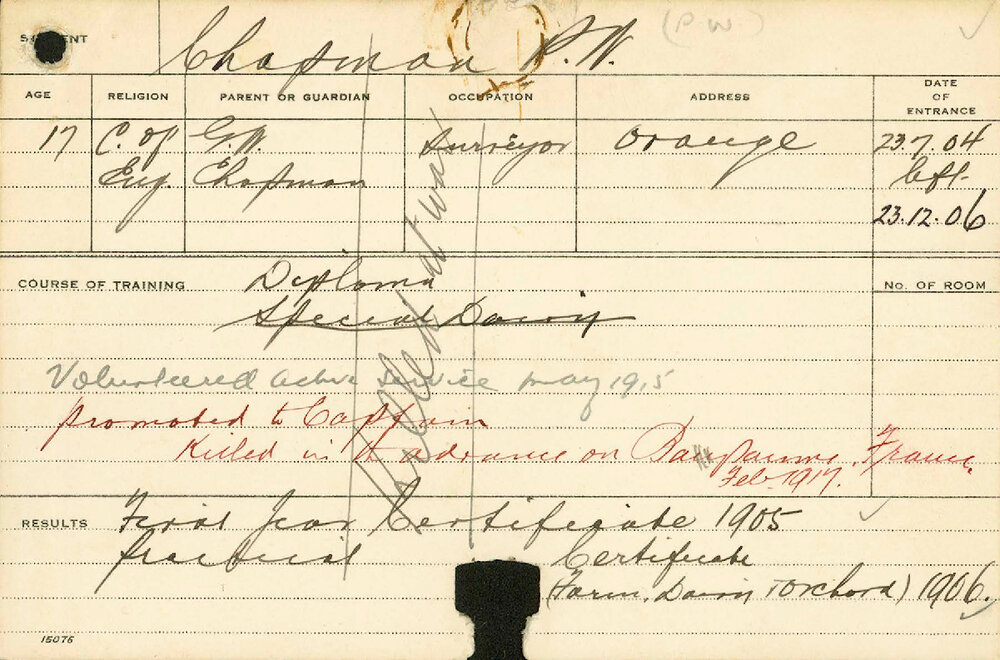 (P W)
STUDENT Chapman P.W.
AGE RELIGION PARENT OR GUARDIAN OCCUPATION ADDRESS DATE OF ENTRANCE
17 C. of G.W. Surveyor Orange 23.7.04
Eng. Chapman left
23.12.06
COURSE OF TRAINING Diploma No. OF ROOM
Special Dairy
Killed at war
Volunteered active service may 1915
promoted to Captain
Killed in advance on Bapaume. France.
Feb. 1917.
RESULTS First Year Certificate 1905
Practical Certificate
(Farm, Dairy + Orchard) 1906.
15076